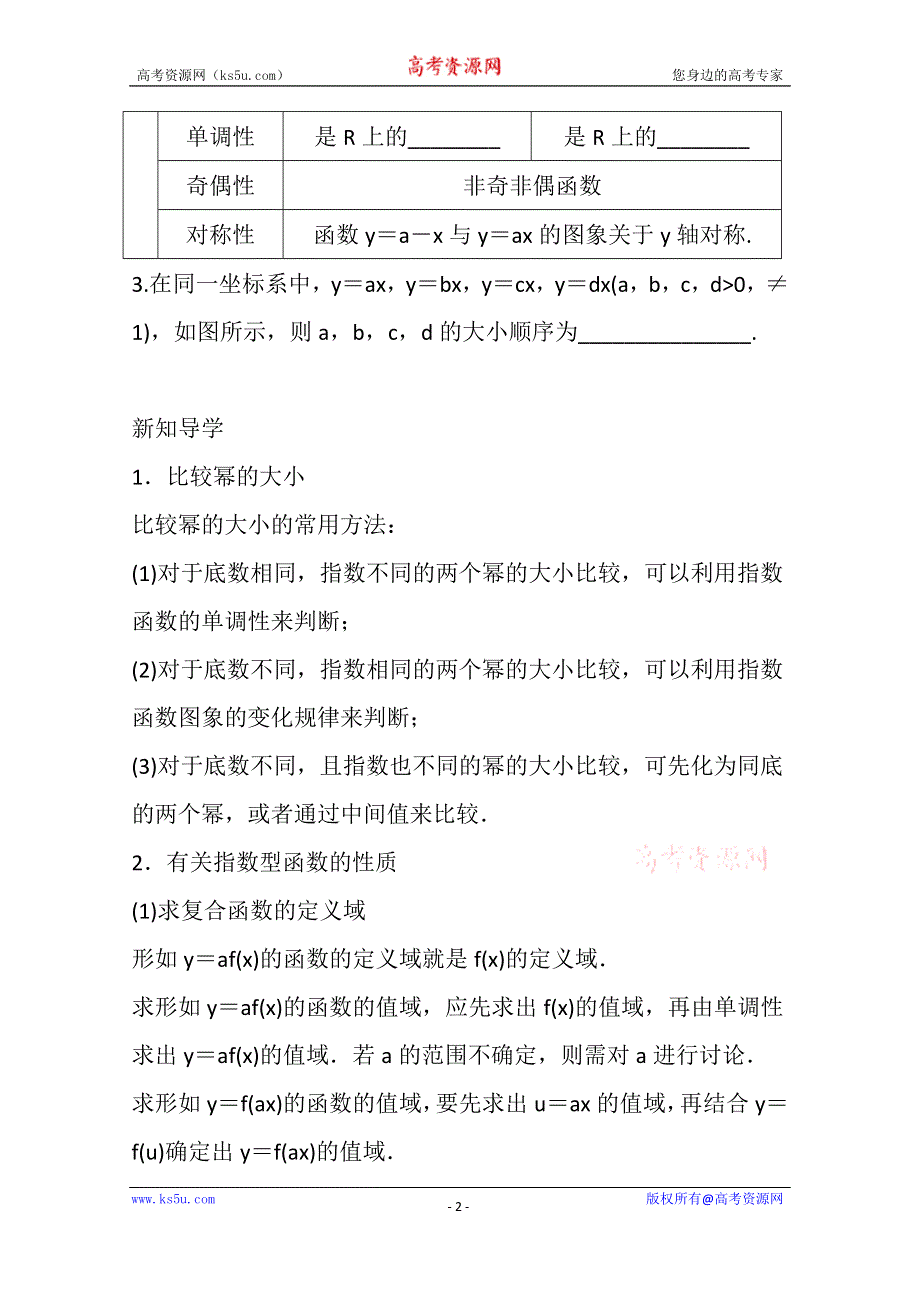 高考资源网（ks5u.com）
高考资源网
您身边的高考专家
单调性 是 R 上的________ 是 R 上的________
奇偶性 非奇非偶函数
对称性 函数 y＝a－x 与 y＝ax 的图象关于 y 轴对称.
3.在同一坐标系中，y＝ax，y＝bx，y＝cx，y＝dx(a，b，c，d>0，≠
1)，如图所示，则 a，b，c，d 的大小顺序为_______________.
新知导学
1．比较幂的大小
比较幂的大小的常用方法：
(1)对于底数相同，指数不同的两个幂的大小比较，可以利用指数
函数的单调性来判断；
(2)对于底数不同，指数相同的两个幂的大小比较，可以利用指数
函数图象的变化规律来判断；
(3)对于底数不同，且指数也不同的幂的大小比较，可先化为同底
的两个幂，或者通过中间值来比较．
2．有关指数型函数的性质
高考资源网
(1)求复合函数的定义域
形如 y＝af(x)的函数的定义域就是 f(x)的定义域．
求形如 y＝af(x)的函数的值域，应先求出 f(x)的值域，再由单调性
求出 y＝af(x)的值域．若 a 的范围不确定，则需对 a 进行讨论．
求形如 y＝f(ax)的函数的值域，要先求出 u＝ax 的值域，再结合 y＝
f(u)确定出 y＝f(ax)的值域．
www.ks5u.com
- 2 -
版权所有@高考资源网